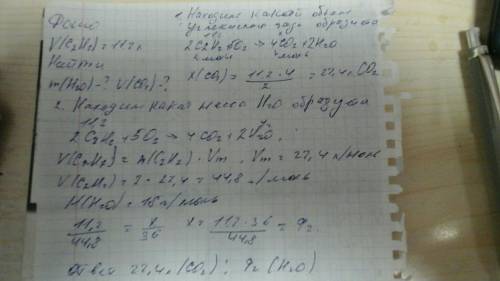 Дано
V(C₂H₂) = 11,2 л
Найти
m(H₂O)-? V(CO₂)-?
1. Находим какой объем
углекислого газа образуется
11,2 x
2C₂H₂+5O₂ → 4CO₂+2H₂O
2 моль 4 моль
X(CO₂) = 11,2 · 4 / 2 = 22,4 л CO₂
2. Находим какая масса H₂O образуется
11,2 x
2C₂H₂ + 5O₂ → 4CO₂ + 2H₂O
V(C₂H₂) = n(C₂H₂) · Vm, Vm = 22,4 л/моль
V(C₂H₂) = 2 · 22,4 = 44,8 л/моль
M(H₂O) = 18 г/моль
11,2 / 44,8 = X / 36 X = 11,2 · 36 / 44,8 = 9 г.
Ответ 22,4 л (CO₂); 9 г (H₂O)